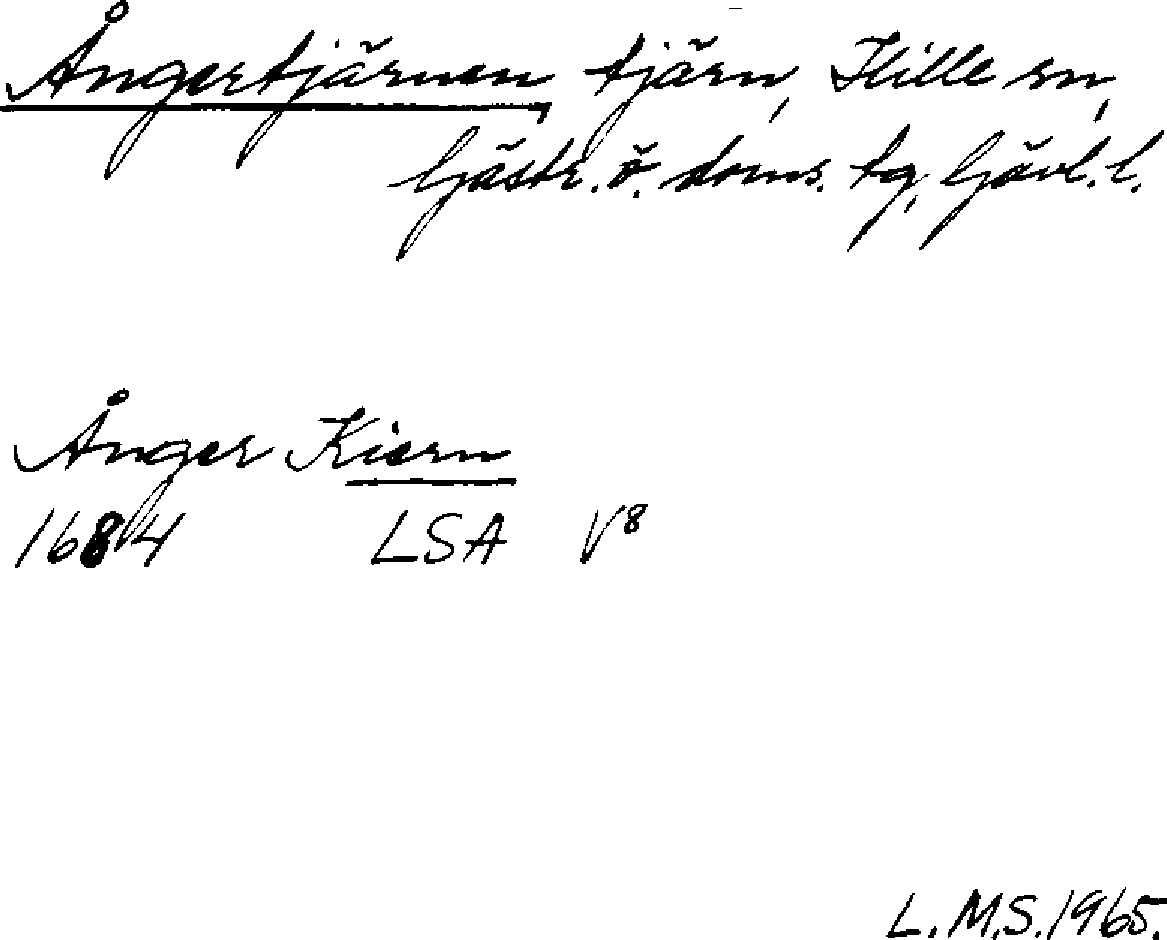 Ångertjärnen, tjärn, Hille sn,
Gästr. ö. doms. tg, Gävl. l.
Ånger Kiern
1684 LSA V8
L.M.S. 1965.